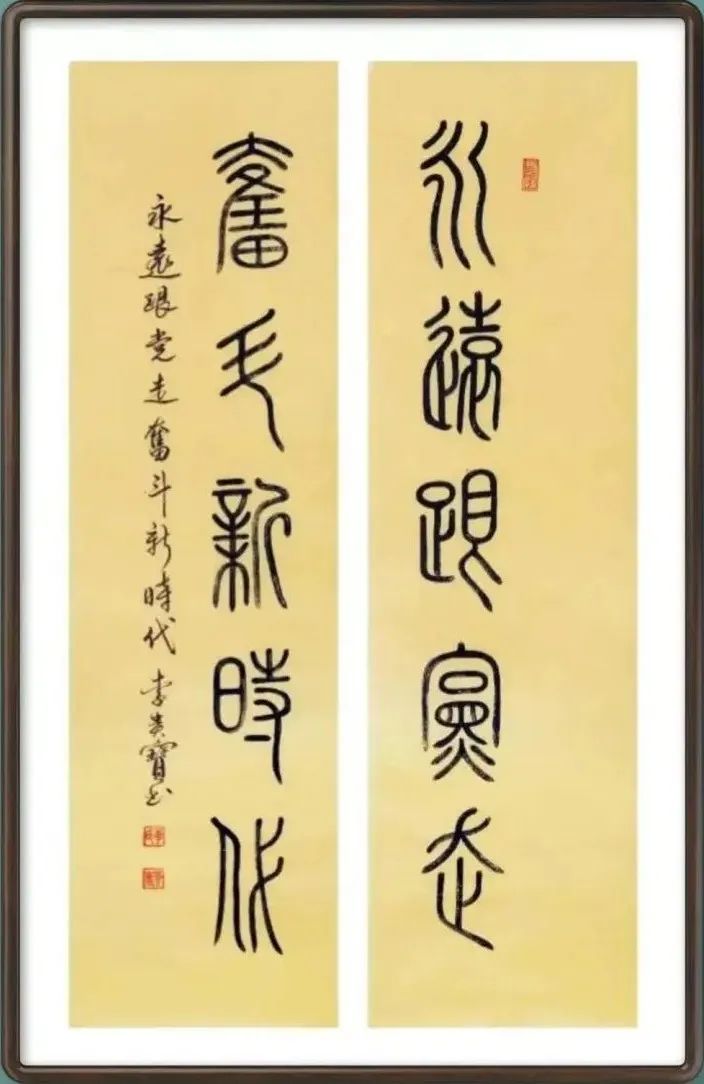 永遠跟黨走
奮斗新時代
永遠跟党走奮斗新時代 李貴寶书